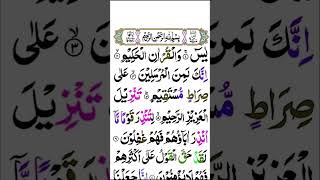 بِسْمِ اللهِ الرَّحْمٰنِ الرَّحِيْمِ
يٰسٓ ۚ وَالْقُرْاٰنِ الْحَكِيْمِ
اِنَّكَ لَمِنَ الْمُرْسَلِيْنَ عَلٰى
صِرَاطٍ مُّسْتَقِيْمٍ تَنْزِيْلَ
الْعَزِيْزِ الرَّحِيْمِ لِتُنْذِرَ قَوْمًا مَّا
اُنْذِرَ اٰبَآؤُهُمْ فَهُمْ غٰفِلُوْنَ
لَقَدْ حَقَّ الْقَوْلُ عَلٰٓى اَكْثَرِهِمْ
فَهُمْ لَا يُؤْمِنُوْنَ اِنَّا جَعَلْنَا